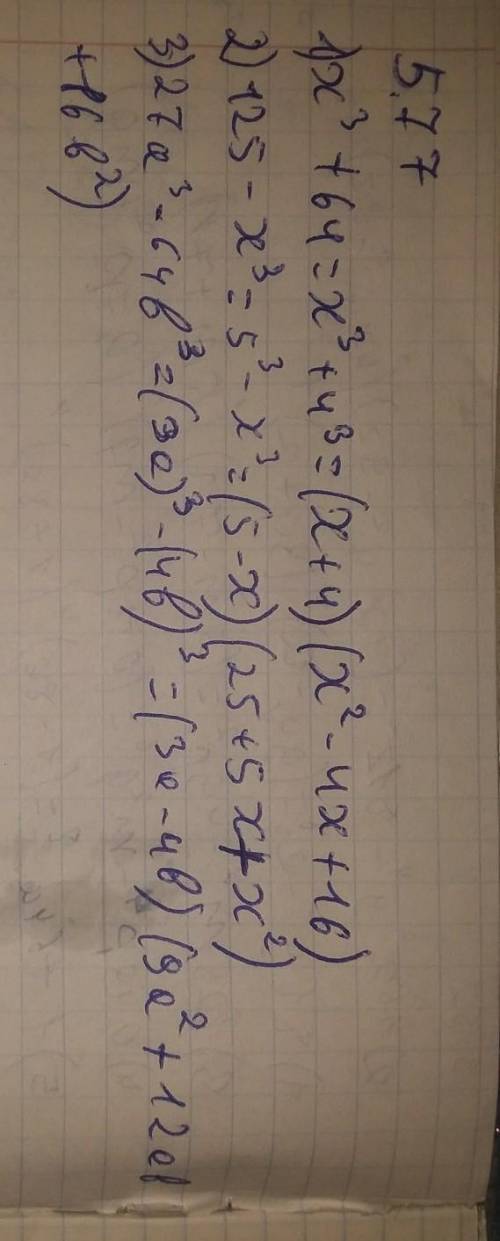 5.77
1) x³ + 64 = x³ + 4³ = (x + 4) (x² - 4x + 16)
2) 125 - x³ = 5³ - x³ = (5 - x) (25 + 5x + x²)
3) 27a³ - 64b³ = (3a)³ - (4b)³ = (3a - 4b) (9a² + 12ab
+ 16b²)